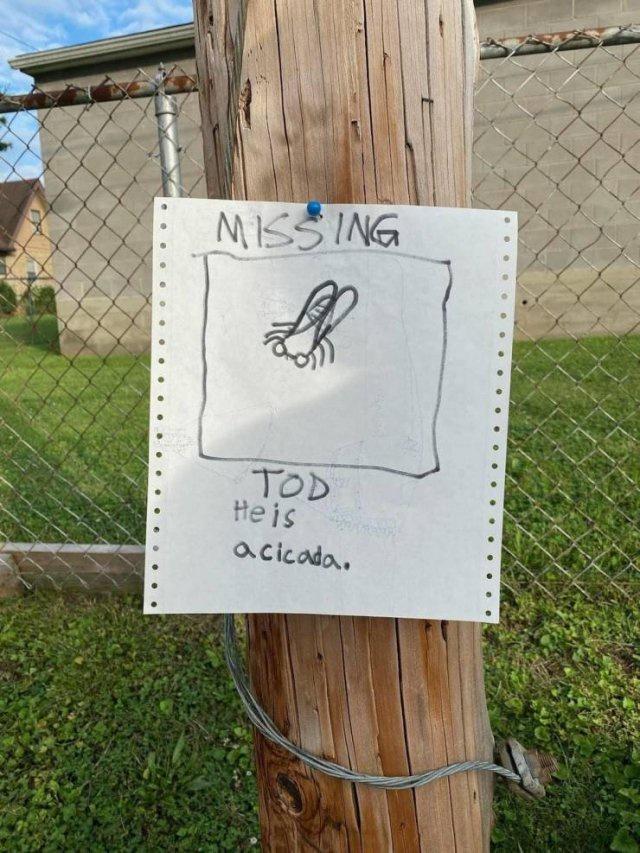 MISSING
TOD
He is
a cicada.